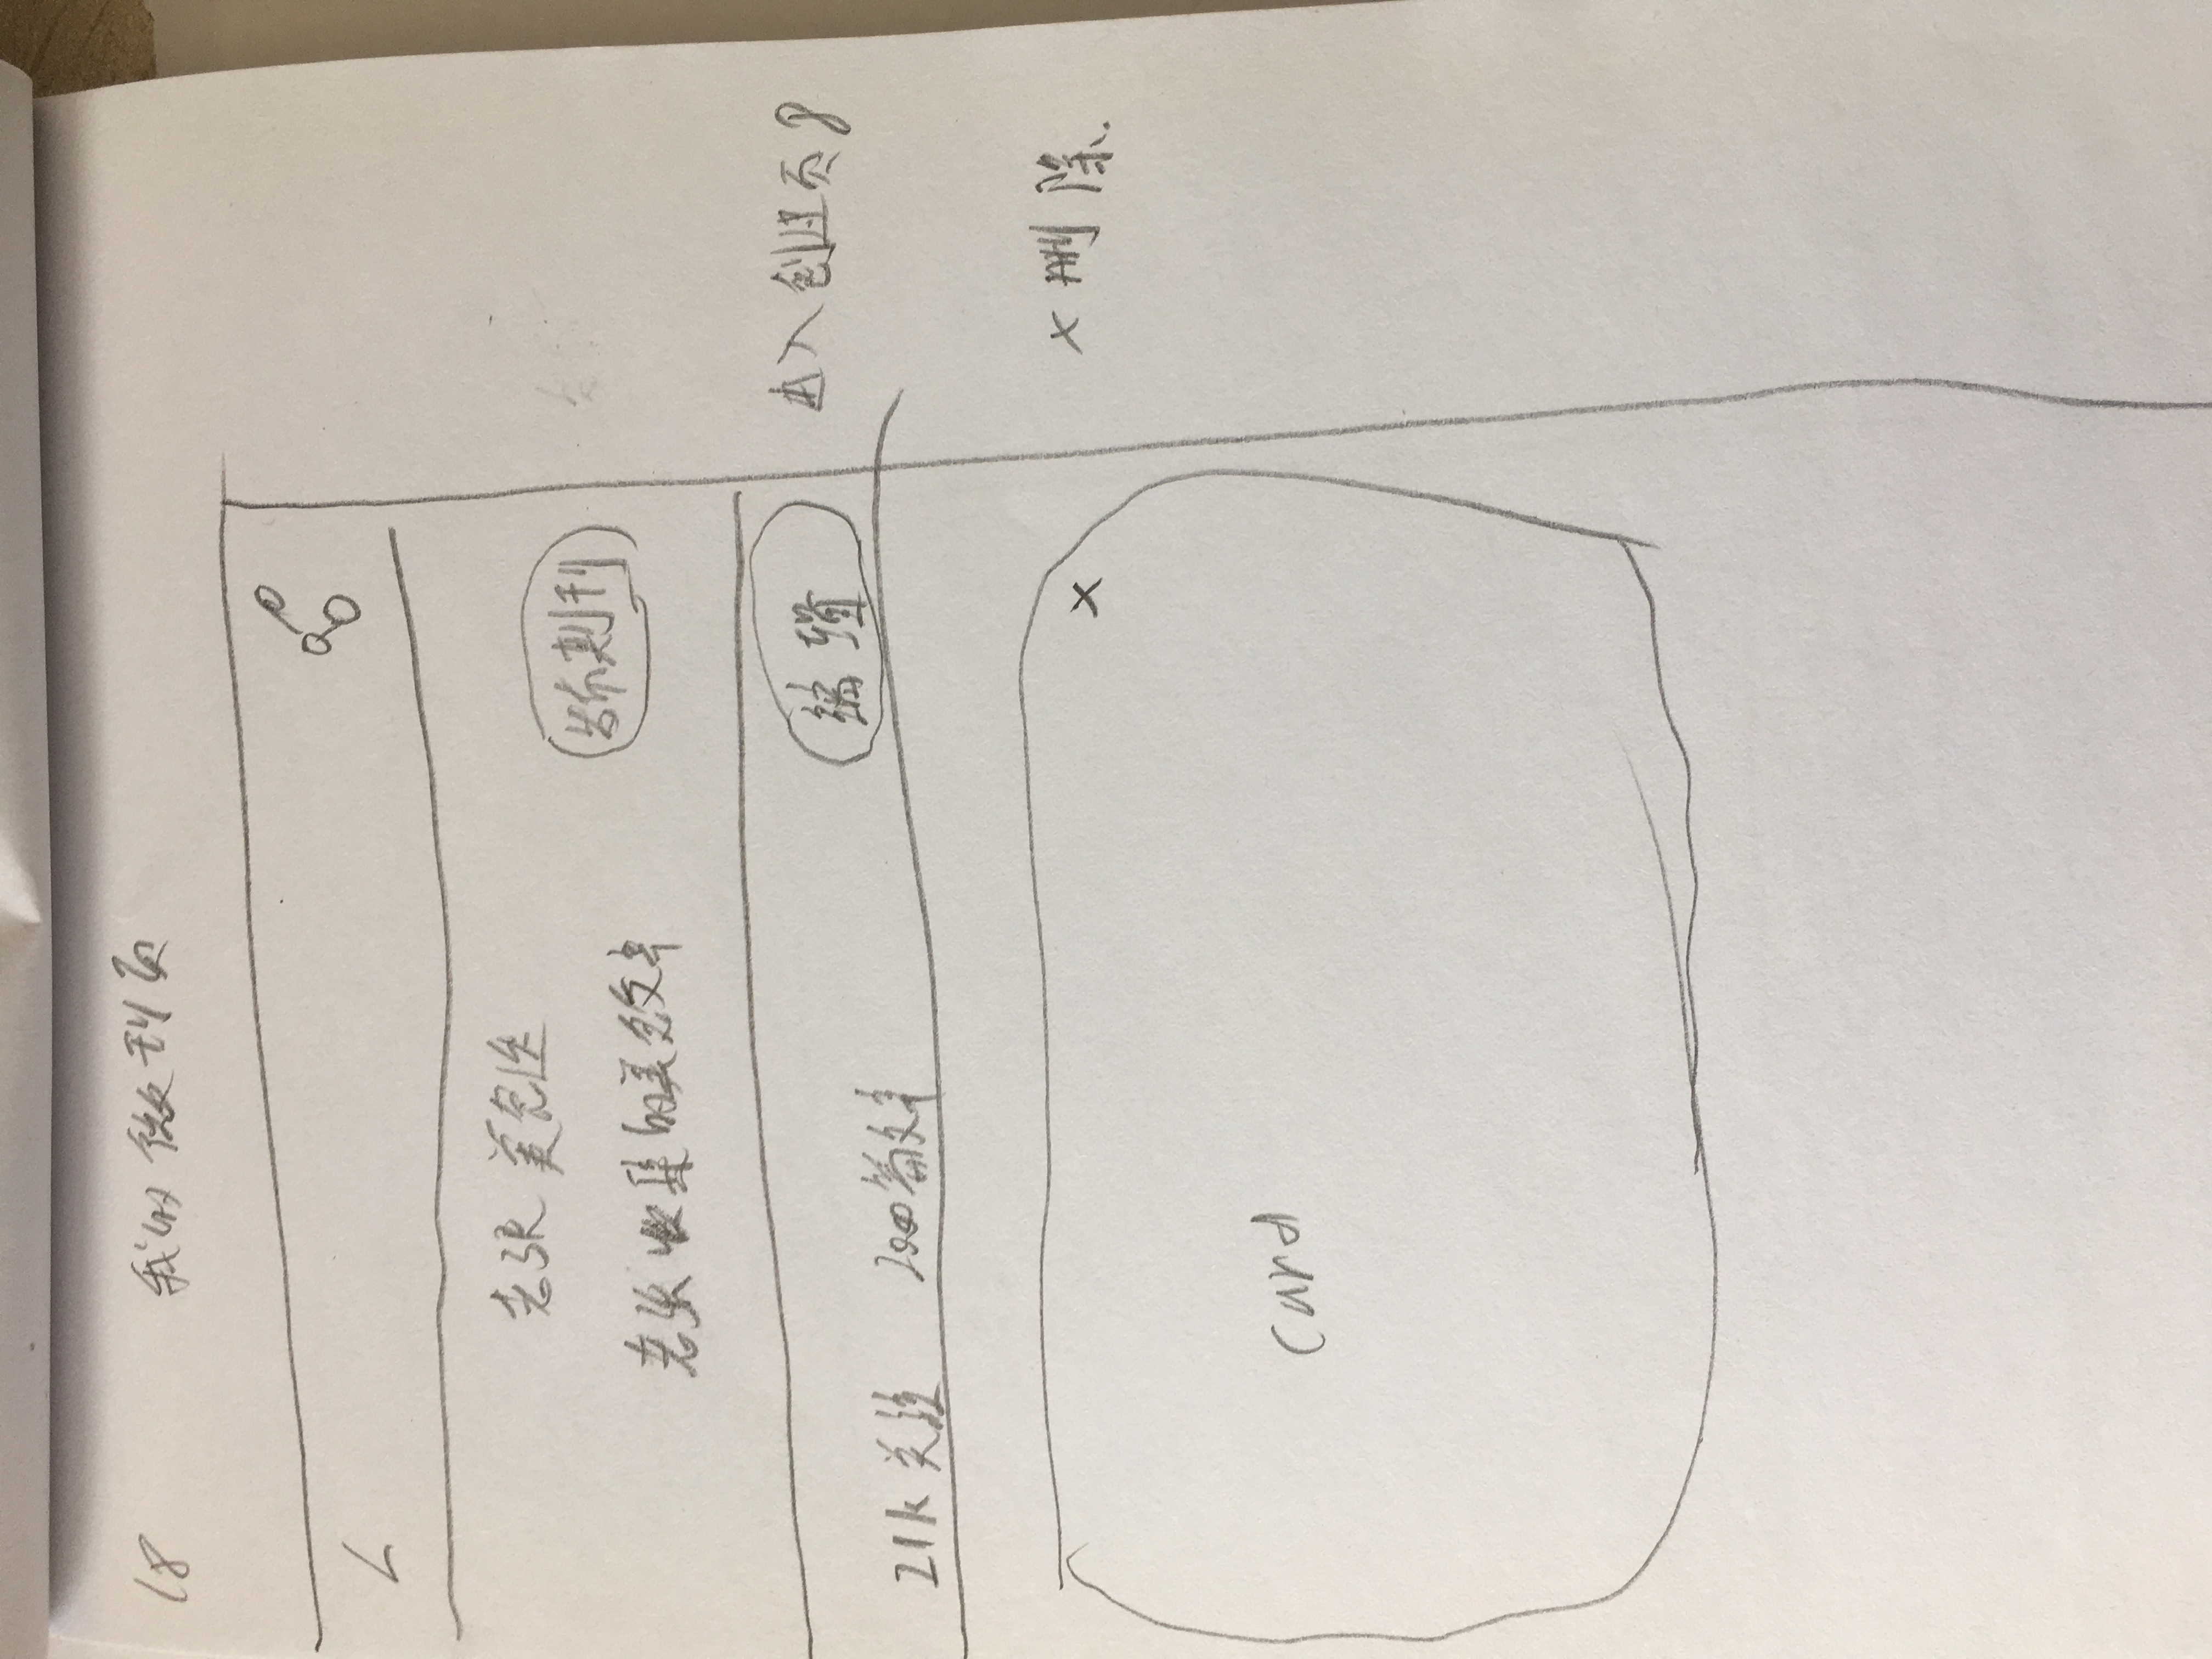 18 我的微刊页
<
老张美食迷
发布期刊
老张收集的美食文章
编辑
进入创建页8
21k关注 2000篇文章
× 删除.
×
Card